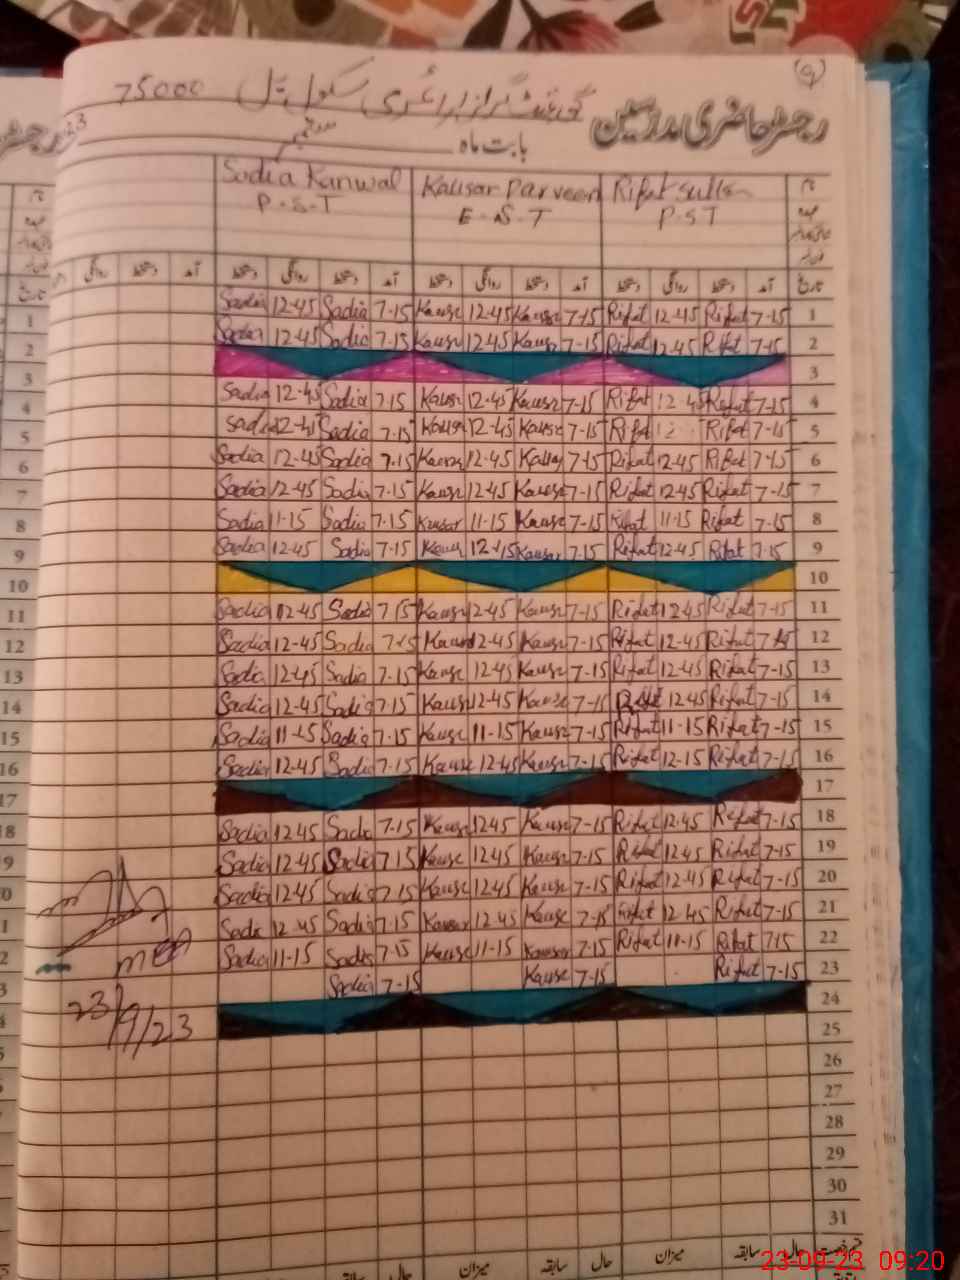 (9)
رجسٹر حاضری مدرسین گورنمنٹ گرلز پرائمری سکول 75000
بابت ماہ ستمبر 23
Sadia Kanwal Kausar Parveen Rifat
P.S.T E.S.T P.S.T
تاریخ آمد دستخط روانگی دستخط آمد دستخط روانگی دستخط آمد دستخط روانگی دستخط آمد دستخط روانگی
Sadia 12-45 Sadia 7-15 Kausr 12-45 Kausr 7-15 Rifat 12-45 Rifat 7-15 1
Sadia 12-45 Sadia 7-15 Kausr 12-45 Kausr 7-15 Rifat 12-45 Rifat 7-15 2
3
Sadia 12-45 Sadia 7-15 Kausr 12-45 Kausr 7-15 Rifat 12-45 Rifat 7-15 4
Sadia 12-45 Sadia 7-15 Kausr 12-45 Kausr 7-15 Rifat Rifat 7-15 5
Sadia 12-45 Sadia 7-15 Kausr 12-45 Kausr 7-15 Rifat 12-45 Rifat 7-15 6
Sadia 12-45 Sadia 7-15 Kausr 12-45 Kausr 7-15 Rifat 12-45 Rifat 7-15 7
Sadia 11-15 Sadia 7-15 Kausar 11-15 Kausr 7-15 Rifat 11-15 Rifat 7-15 8
Sadia 12-45 Sadia 7-15 Kausr 12-45 Kausar 7-15 Rifat 12-45 Rifat 7-15 9
10
Sadia 12-45 Sadia 7-15 Kausr 12-45 Kausr 7-15 Rifat 12-45 Rifat 7-15 11
Sadia 12-45 Sadia 7-15 Kausr 12-45 Kausr 7-15 Rifat 12-45 Rifat 7-15 12
Sadia 12-45 Sadia 7-15 Kausr 12-45 Kausr 7-15 Rifat 12-45 Rifat 7-15 13
Sadia 12-45 Sadia 7-15 Kausr 12-45 Kausr 7-15 Rifat 12-45 Rifat 7-15 14
Sadia 11-15 Sadia 7-15 Kausr 11-15 Kausr 7-15 Rifat 11-15 Rifat 7-15 15
Sadia 12-45 Sadia 7-15 Kausr 12-45 Kausr 7-15 Rifat 12-15 Rifat 7-15 16
17
Sadia 12-45 Sadia 7-15 Kausr 12-45 Kausr 7-15 Rifat 12-45 Rifat 7-15 18
Sadia 12-45 Sadia 7-15 Kausr 12-45 Kausr 7-15 Rifat 12-45 Rifat 7-15 19
Sadia 12-45 Sadia 7-15 Kausr 12-45 Kausr 7-15 Rifat 12-45 Rifat 7-15 20
Sadia 12-45 Sadia 7-15 Kausar 12-45 Kausr 7-15 Rifat 12-45 Rifat 7-15 21
Sadia 11-15 Sadia 7-15 Kausr 11-15 Kausar 7-15 Rifat 11-15 Rifat 7-15 22
Sadia 7-15 Kausr 7-15 Rifat 7-15 23
24
23/9/23
25
26
27
28
29
30
31
حال سابقہ میزان حال سابقہ میزان حال
23-09-23 09:20